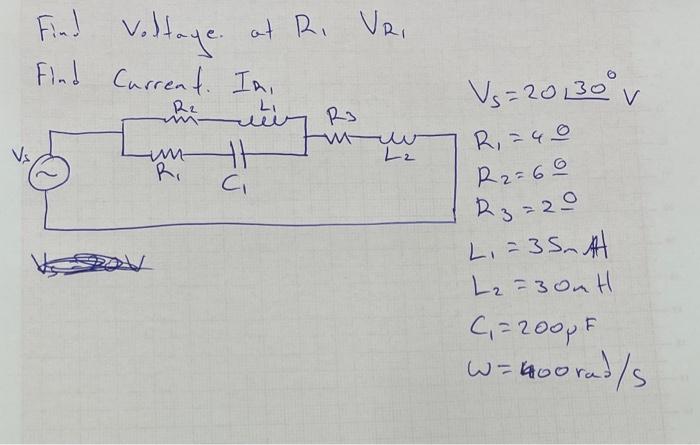 Find Voltage. at R₁ VR₁
Find Current. IR₁
R₂ L₁
R₃
L₂
Vs
R₁ C₁
Vs = 20∠30° V
R₁ = 4 Ω
R₂ = 6 Ω
R₃ = 2 Ω
L₁ = 35m H
L₂ = 30m H
C₁ = 200μF
W = 400 rad/s